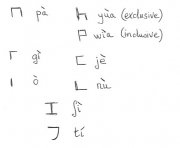 pà yùa (exclusive)
wìa (inclusive)
gì jè
ò nù
ʃì
tí